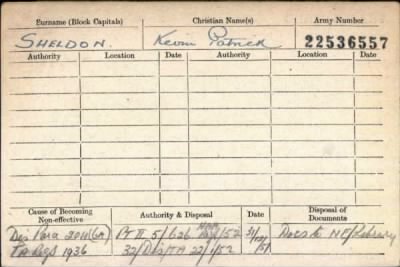 Surname (Block Capitals) Christian Name(s) Army Number
SHELDON. Kevin Patrick 22536557
Authority Location Date Authority Location Date
Cause of Becoming Non-effective Authority & Disposal Date Disposal of Documents
Dis Para 204(6A) Pt II 5/626 /52 31/12/51 Docs to NE/Library
TA Regs 1936 32/Dis/TA 22/1/52